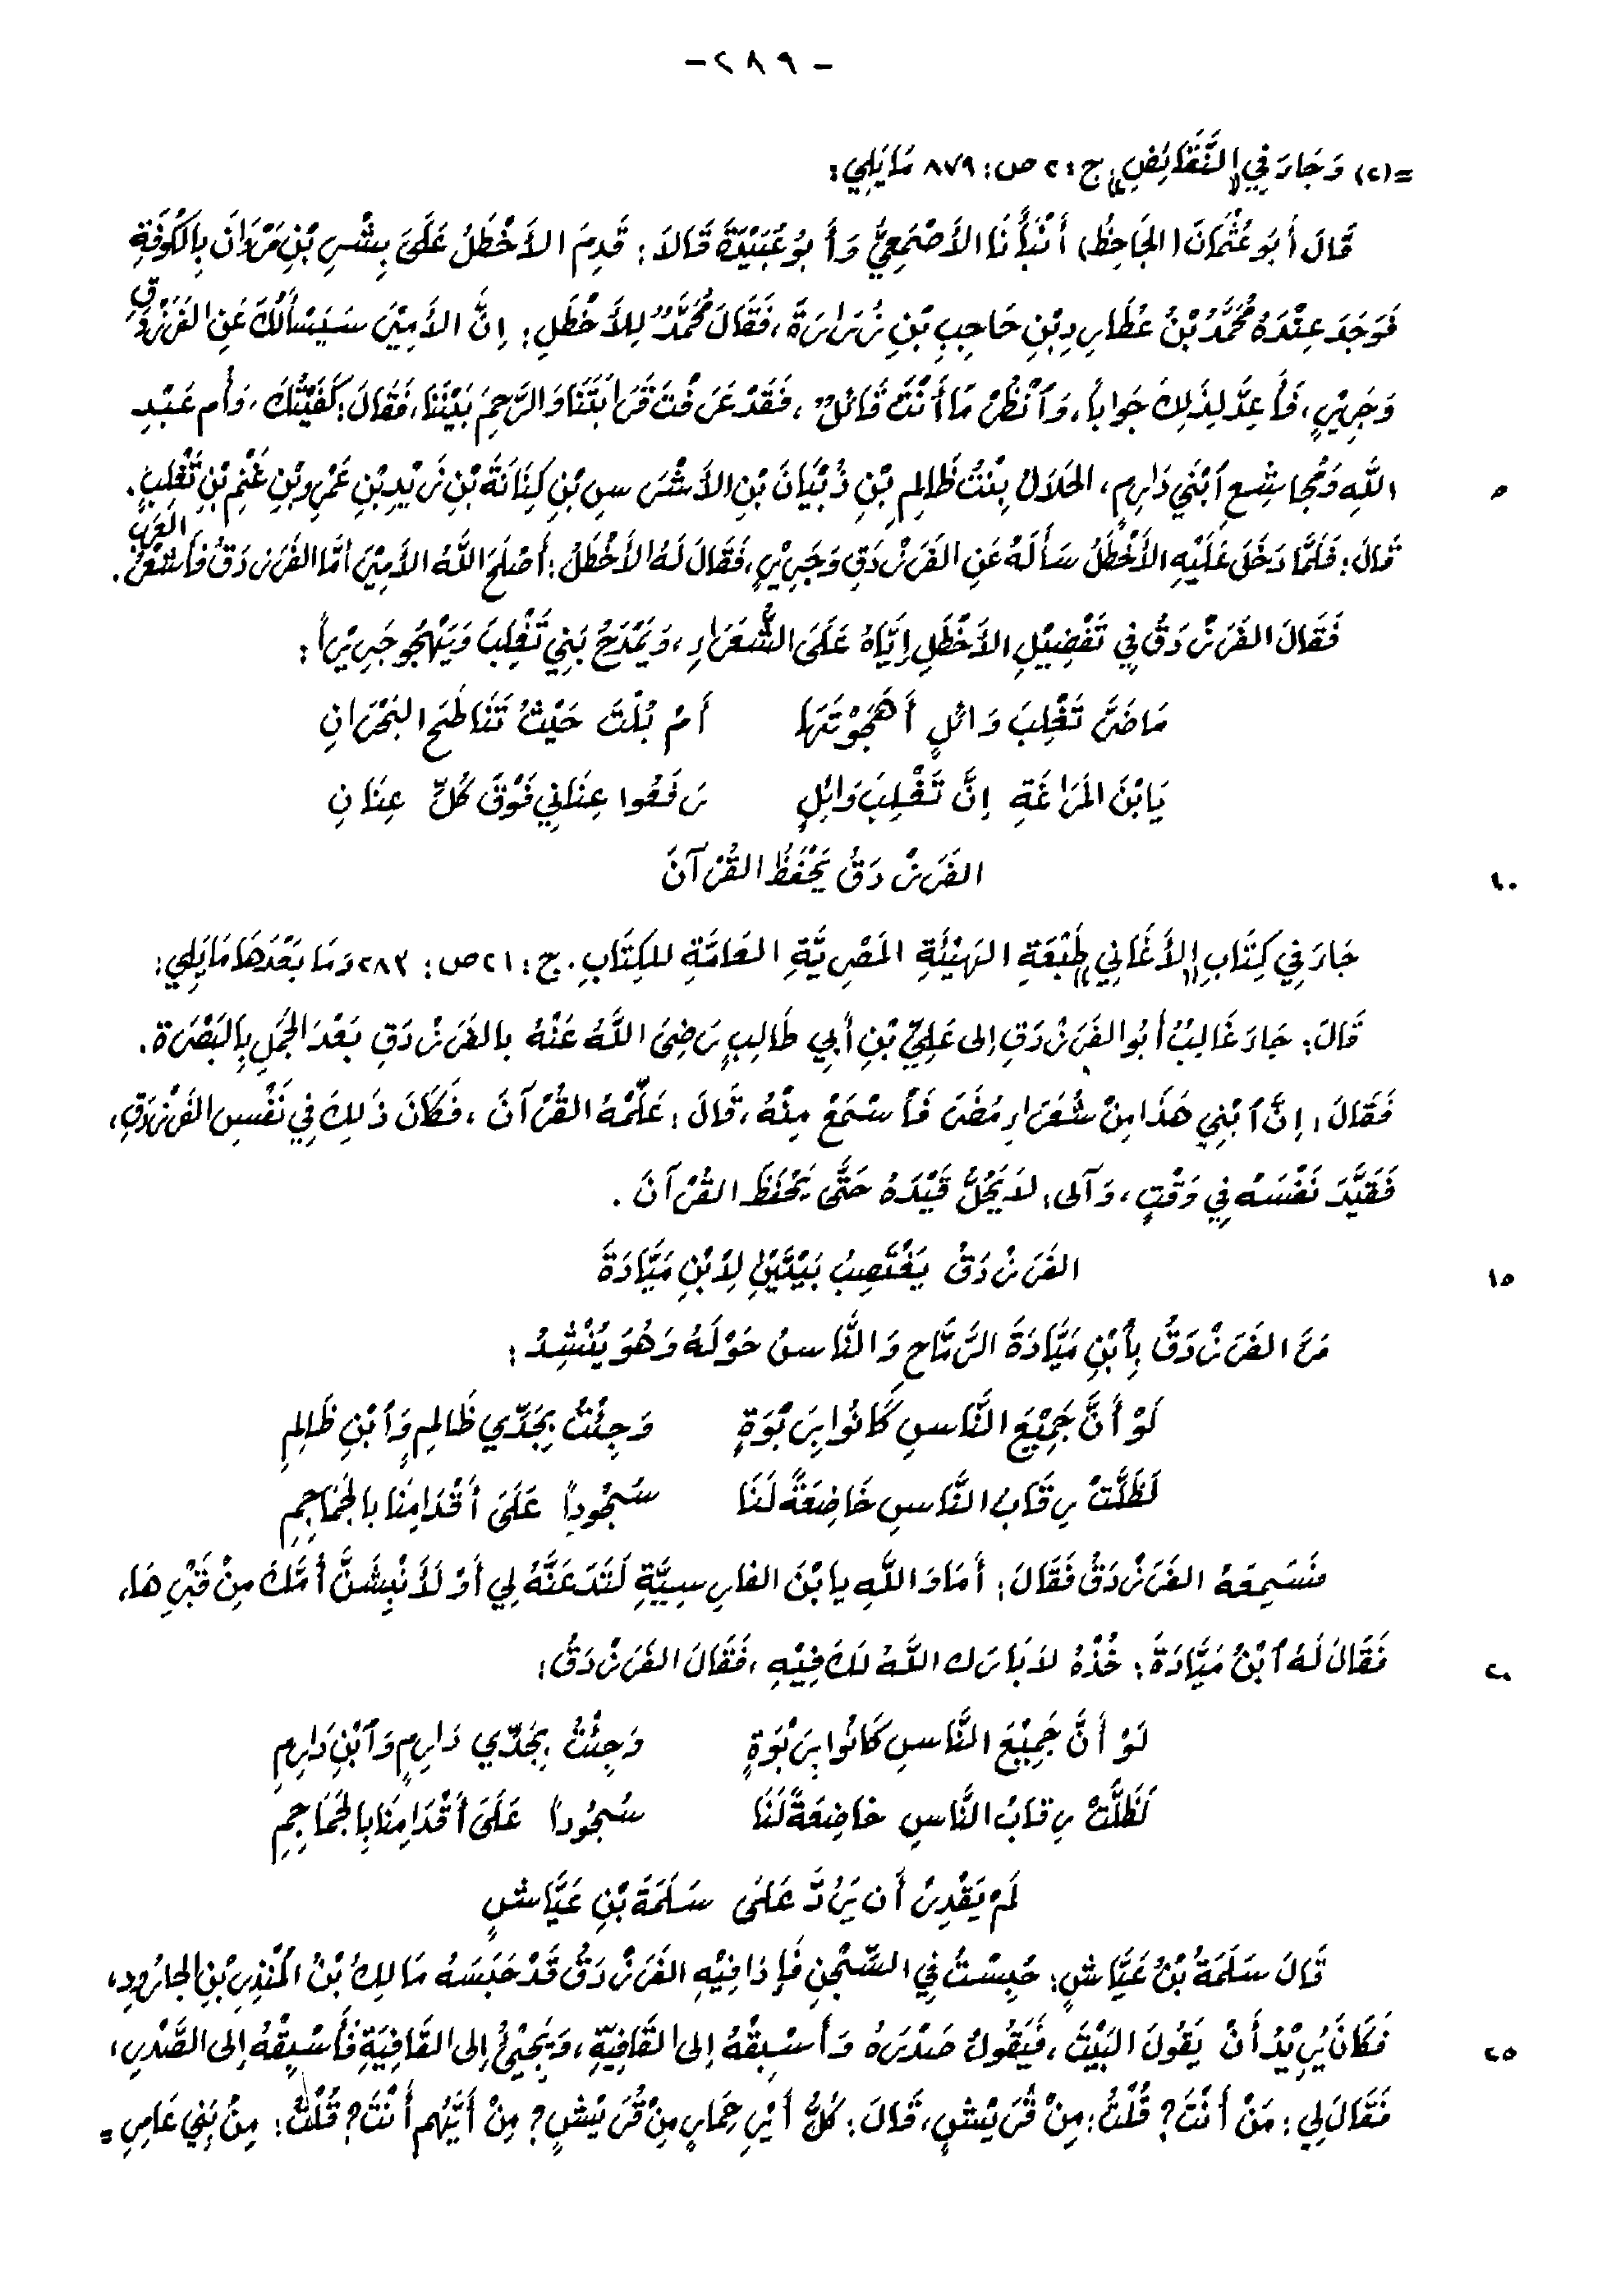 -٢٨٩-
=(٢) وَجَاءَ فِي «النَّقَائِضِ» ج: ٢ ص: ٨٧٩ مَا يَلِي:
قَالَ أَبُو عُثْمَانَ (الجَاحِظُ) أَنْبَأَنَا الأَصْمَعِيُّ وَأَبُو عُبَيْدَةَ قَالَا: قَدِمَ الأَخْطَلُ عَلَى بِشْرِ بْنِ مَرْوَانَ بِالكُوفَةِ
فَوَجَدَ عِنْدَهُ مُحَمَّدُ بْنُ عُطَارِدِ بْنِ حَاجِبِ بْنِ زُرَارَةَ، فَقَالَ مُحَمَّدٌ لِلأَخْطَلِ: إِنَّ الأَمِيْرَ سَيَسْأَلُكَ عَنِ الفَرَزْدَقِ
وَجَرِيْرٍ، فَأَعِدَّ لِذَلِكَ جَوَاباً، وَٱنْظُرْ مَا أَنْتَ قَائِلٌ، فَقَدْ عَرَفْتَ قَرَابَتَنَا وَالرَّحِمَ بَيْنَنَا، فَقَالَ: كَفَيْتُكَ، وَأُم عَبْدِ
اللَّهِ وَمُجَاشِعِ ٱبْنَي دَارِمٍ، الحَلَالُ بِنْتُ ظَالِمِ بْنِ ذُبْيَانَ بْنِ الأَشْرَسِ بْنِ كِنَانَةَ بْنِ زَيْدِ بْنِ عَمْرِو بْنِ غَنْمِ بْنِ تَغْلِبَ. ٥
قَالَ: فَلَمَّا دَخَلَ عَلَيْهِ الأَخْطَلُ سَأَلَهُ عَنِ الفَرَزْدَقِ وَجَرِيْرٍ، فَقَالَ لَهُ الأَخْطَلُ: أَصْلَحَ اللَّهُ الأَمِيْرَ أَمَّا الفَرَزْدَقُ فَأَشْعَرُ العَرَبِ.
فَقَالَ الفَرَزْدَقُ فِي تَفْضِيْلِ الأَخْطَلِ إِيَّاهُ عَلَى الشُّعَرَاءِ، وَيَمْدَحُ بَنِي تَغْلِبَ وَيَهْجُو جَرِيْراً:
مَا ضَرَّ تَغْلِبَ وَائِلٍ أَهَجَوْتَهَا أَمْ بُلْتَ حَيْثُ تَنَاطَحَ البَحْرَانِ
يَا بْنَ المَرَاغَةِ إِنَّ تَغْلِبَ وَائِلٍ رَفَعُوا عِنَانِي فَوْقَ كُلِّ عِنَانِ
الفَرَزْدَقُ يَحْفَظُ القُرْآنَ ١٠
جَاءَ فِي كِتَابِ «الأَغَانِي» طَبْعَةِ الهَيْئَةِ المَصْرِيَّةِ العَامَّةِ للكِتَابِ. ج: ٢١ ص: ٢٨٣ وَمَا بَعْدَهَا مَا يَلِي:
قَالَ: جَاءَ غَالِبٌ أَبُو الفَرَزْدَقِ إلى عَلِيِّ بْنِ أَبِي طَالِبٍ رَضِيَ اللَّهُ عَنْهُ بالفَرَزْدَقِ بَعْدَ الجَمَلِ بِالبَصْرَةِ.
فَقَالَ: إِنَّ ٱبْنِي هَذَا مِنْ شُعَرَاءِ مُضَرَ فَٱسْمَعْ مِنْهُ، قَالَ: عَلِّمْهُ القُرْآنَ، فَكَانَ ذَلِكَ فِي نَفْسِ الفَرَزْدَقِ،
فَقَيَّدَ نَفْسَهُ فِي وَقْتٍ، وَآلى: لَا يَحُلُّ قَيْدَهُ حَتَّى يَحْفَظَ القُرْآنَ.
الفَرَزْدَقُ يَغْتَصِبُ بَيْتَيْنِ لِٱبْنِ مَيَّادَةَ ١٥
مَرَّ الفَرَزْدَقُ بِٱبْنِ مَيَّادَةَ الرَّمَّاحِ وَالنَّاسُ حَوْلَهُ وَهُوَ يُنْشِدُ:
لَوْ أَنَّ جَمِيْعَ النَّاسِ كَانُوا بِرَبْوَةٍ وَجِئْتُ بِجَدِّي ظَالِمٍ وَٱبْنِ ظَالِمِ
لَظَلَّتْ رِقَابُ النَّاسِ خَاضِعَةً لَنَا سُجُوداً عَلَى أَقْدَامِنَا بالجَمَاجِمِ
فَسَمِعَهُ الفَرَزْدَقُ فَقَالَ: أَمَا وَاللَّهِ يا بْنَ الفارِسِيَّةِ لَتَدَعَنَّهُ لِي أَوْ لَأَنْبِشَنَّ أُمَّكَ مِنْ قَبْرِهَا،
فَقَالَ لَهُ ٱبْنُ مَيَّادَةَ: خُذْهُ لَا بَارَكَ اللَّهُ لَكَ فِيْهِ، فَقَالَ الفَرَزْدَقُ: ٢٠
لَوْ أَنَّ جَمِيْعَ النَّاسِ كَانُوا بِرَبْوَةٍ وَجِئْتُ بِجَدِّي دَارِمٍ وَٱبْنِ دَارِمِ
لَظَلَّتْ رِقَابُ النَّاسِ خَاضِعَةً لَنَا سُجُوداً عَلَى أَقْدَامِنَا بِالجَمَاجِمِ
لَمْ يَقْدِرْ أَن يَرُدَّ عَلَى سَلَمَةَ بْنِ عَيَّاشٍ
قَالَ سَلَمَةُ بْنُ عَيَّاشٍ: حُبِسْتُ فِي السِّجْنِ فَإِذَا فِيْهِ الفَرَزْدَقُ قَدْ حَبَسَهُ مَالِكُ بْنُ المُنْذِرِ بْنِ الجارُودِ،
فَكَانَ يُرِيْدُ أَنْ يَقُولَ البَيْتَ، فَيَقُولُ صَدْرَهُ وَأَسْبِقْهُ إلى القَافِيَةِ، وَيَجِيْءُ إلى القَافِيَةِ فَأَسْبِقْهُ إلى الصَّدْرِ، ٢٥
فَقَالَ لِي: مَنْ أَنْتَ؟ قُلْتُ: مِنْ قُرَيْشٍ، قَالَ: كُلُّ أَيْرِ حِمَارٍ مِنْ قُرَيْشٍ؟ مِنْ أَيِّهِم أَنْتَ؟ قُلْتُ: مِنْ بَنِي عَامِرِ =